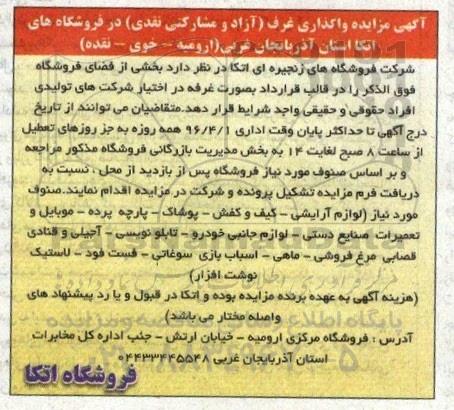 آگهی مزایده واگذاری غرف (آزاد و مشارکتی نقدی) در فروشگاه های
اتکا استان آذربایجان غربی(ارومیه – خوی – نقده)
شرکت فروشگاه های زنجیره ای اتکا در نظر دارد بخشی از فضای فروشگاه
فوق الذکر را در قالب قرارداد بصورت غرفه در اختیار شرکت های تولیدی
افراد حقوقی و حقیقی واجد شرایط قرار دهد.متقاضیان می توانند از تاریخ
درج آگهی تا حداکثر پایان وقت اداری ۹۶/۴/۱ همه روزه به جز روزهای تعطیل
از ساعت ۸ صبح لغایت ۱۴ به بخش مدیریت بازرگانی فروشگاه مذکور مراجعه
و بر اساس صنوف مورد نیاز فروشگاه پس از بازدید از محل ، نسبت به
دریافت فرم مزایده تشکیل پرونده و شرکت در مزایده اقدام نمایند.صنوف
مورد نیاز (لوازم آرایشی – کیف و کفش – پوشاک – پارچه پرده – موبایل و
تعمیرات صنایع دستی – لوازم جانبی خودرو – تابلو نویسی – آجیلی و قنادی
قصابی مرغ فروشی – ماهی – اسباب بازی سوغاتی – فست فود – لاستیک
نوشت افزار)
(هزینه آگهی به عهده برنده مزایده بوده و اتکا در قبول و یا رد پیشنهاد های
واصله مختار می باشد)
آدرس : فروشگاه مرکزی ارومیه – خیابان ارتش – جنب اداره کل مخابرات
استان آذربایجان غربی ۰۴۴۳۳۴۴۵۵۴۸
فروشگاه اتکا